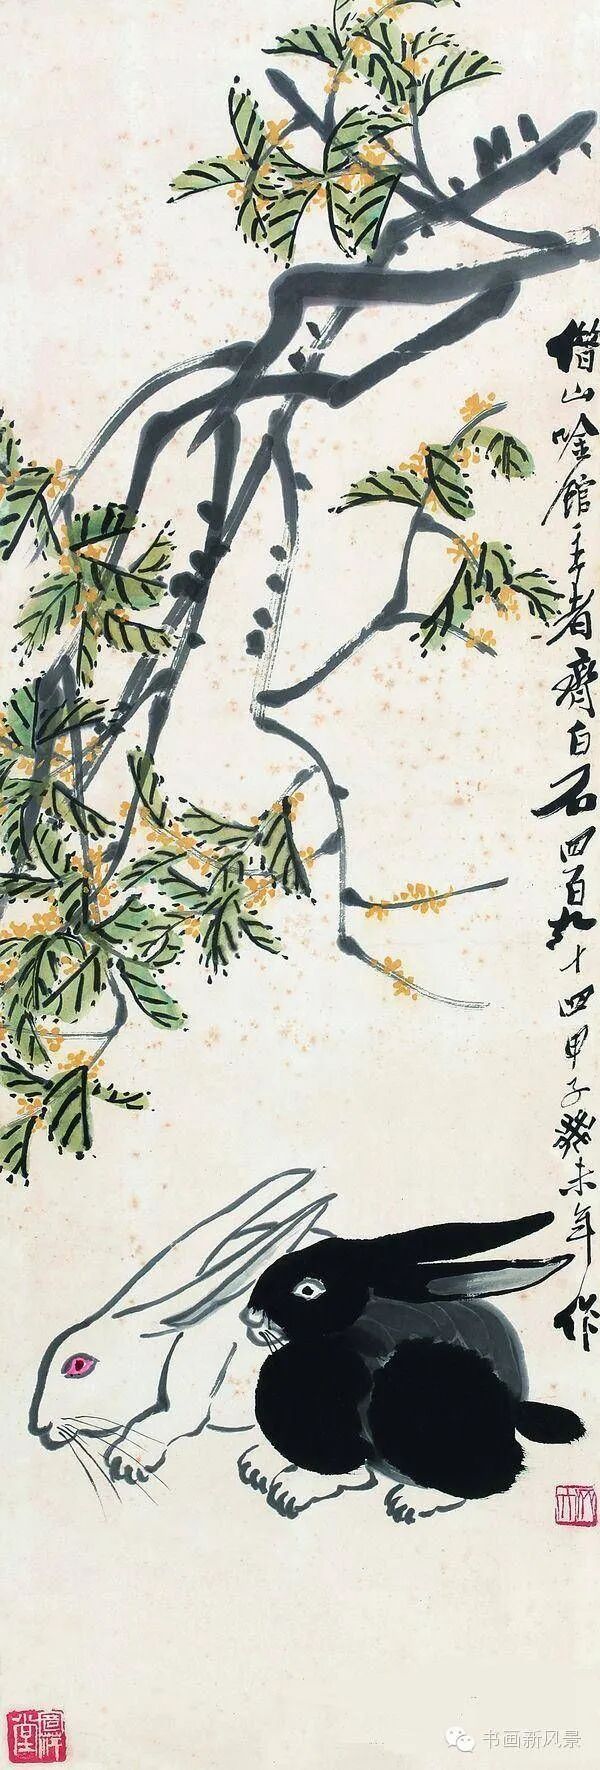 借山唫館主者齊白石四百九十四甲子癸未年作
书画新风景